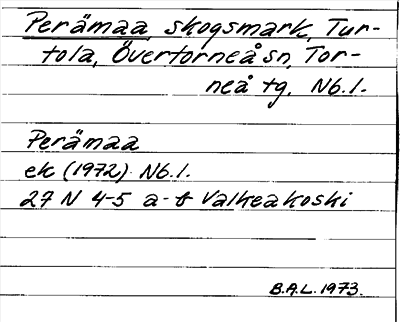 Perämaa, skogsmark, Tur-
tola, Övertorneå sn, Tor-
neå tg. Nb.l.
Perämaa
ek (1972) Nb.l.
27 N 4-5 a-b Valkeakoski
B.A.L. 1973.